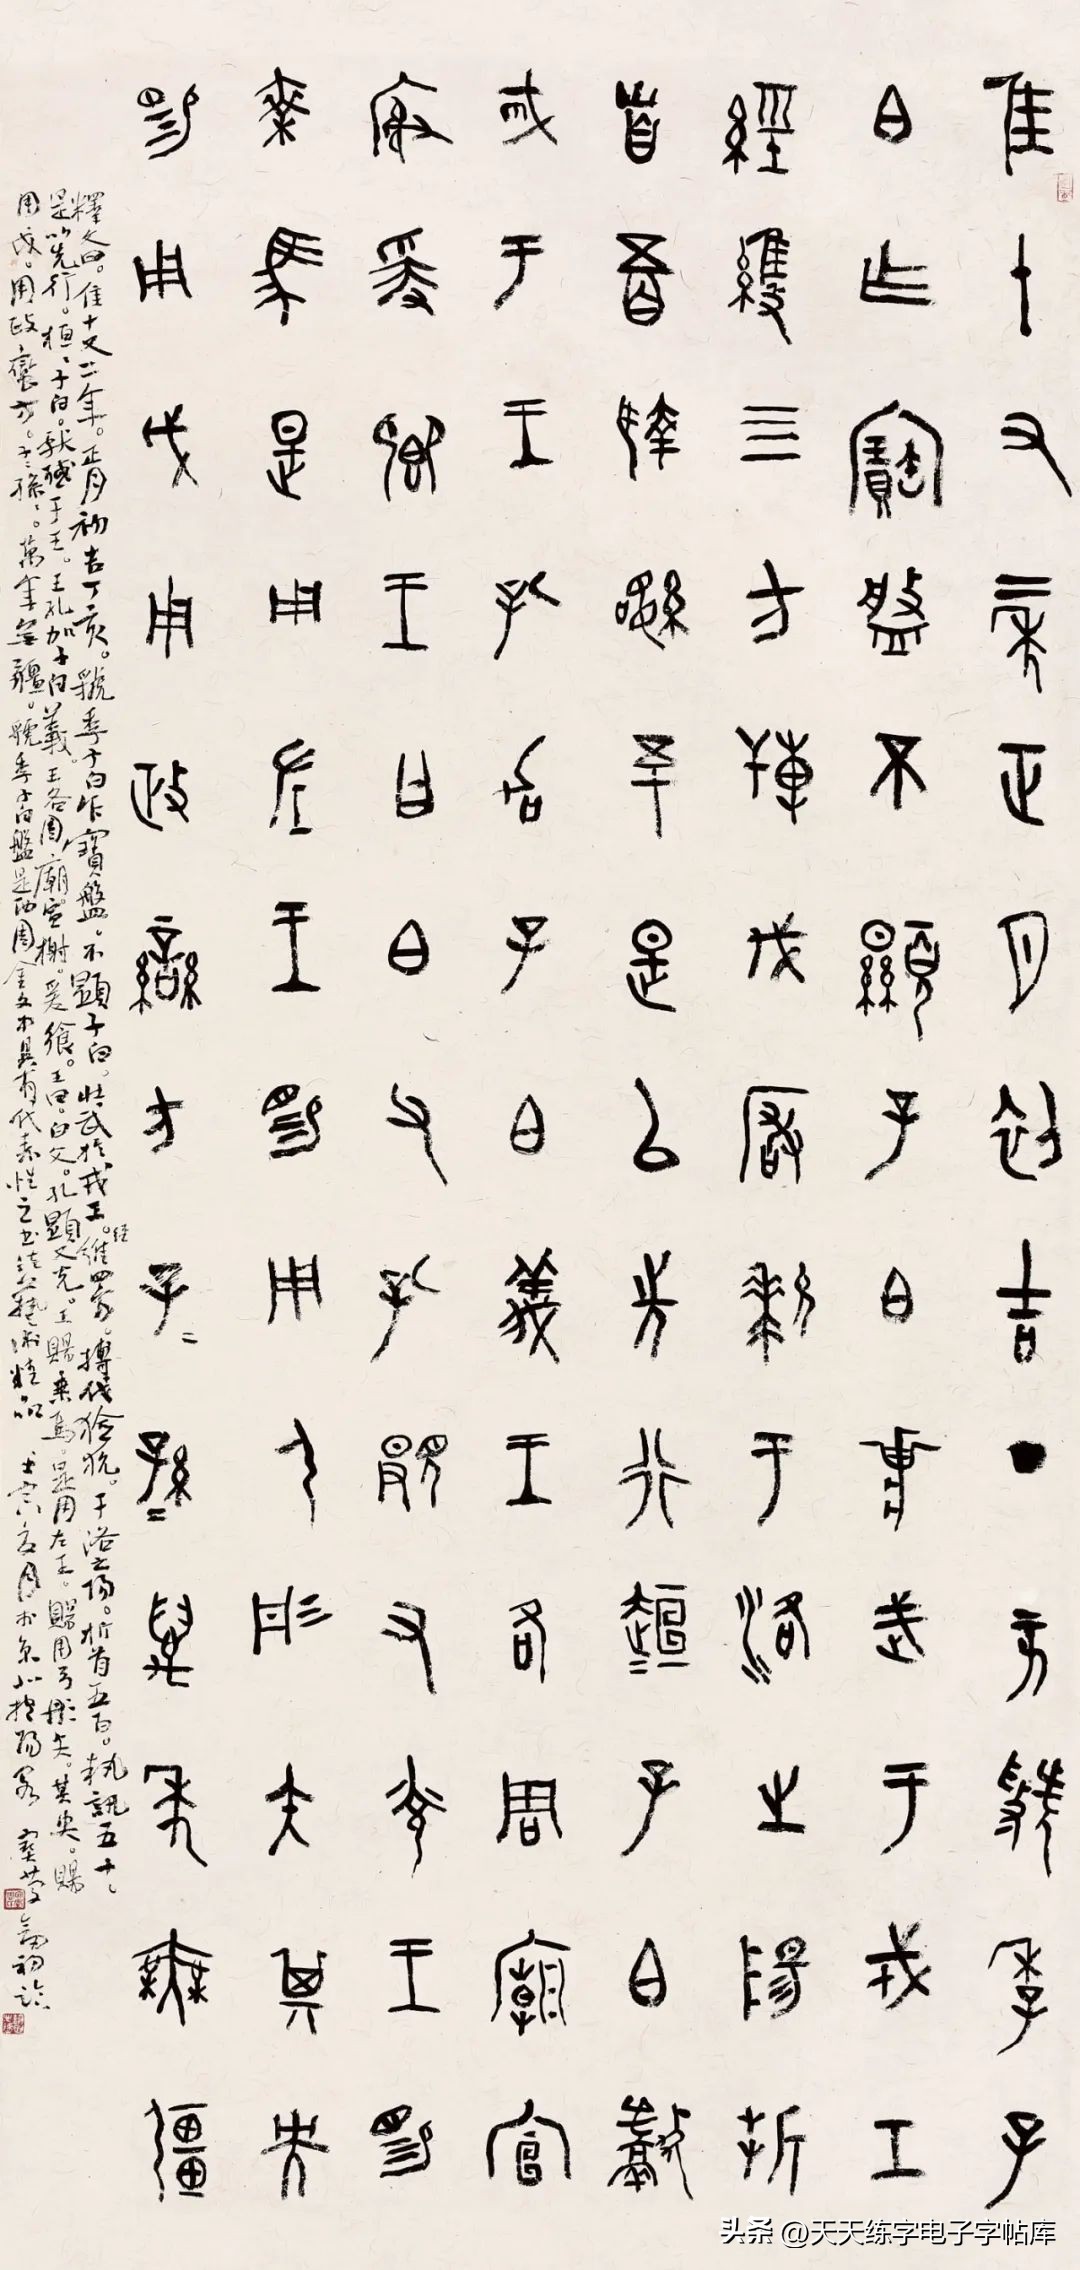 隹十又二年正月初吉丁亥虢季子
白乍寶盤不顯子白壯武于戎工
經維四方搏伐玁狁于洛之陽折
首五百執訊五十是以先行桓=子白獻
馘于王孔加子白義王各周廟宣
榭爰鄉王曰白父孔顯又光王賜
乘馬是用左王賜用弓彤矢其央
賜用戉用政蠻方子=孫=萬年無疆
釋文曰。隹十又二年。正月初吉丁亥。虢季子白作寶盤。不顯子白。壯武於戎工。經維四方。搏伐玁狁。于洛之陽。折首五百。執訊五十。
是以先行。桓桓子白。獻馘于王。王孔加子白義。王各周廟。宣榭。爰饗。王曰。白父。孔顯又光。王賜乘馬。是用左王。賜用弓彤矢。其央。賜
用戉。用政蠻方。子=孫=。萬年無疆。虢季子白盤是西周金文中具有代表性之書法藝術精品 壬寅夏月於京
头条 @天天练字电子字帖库